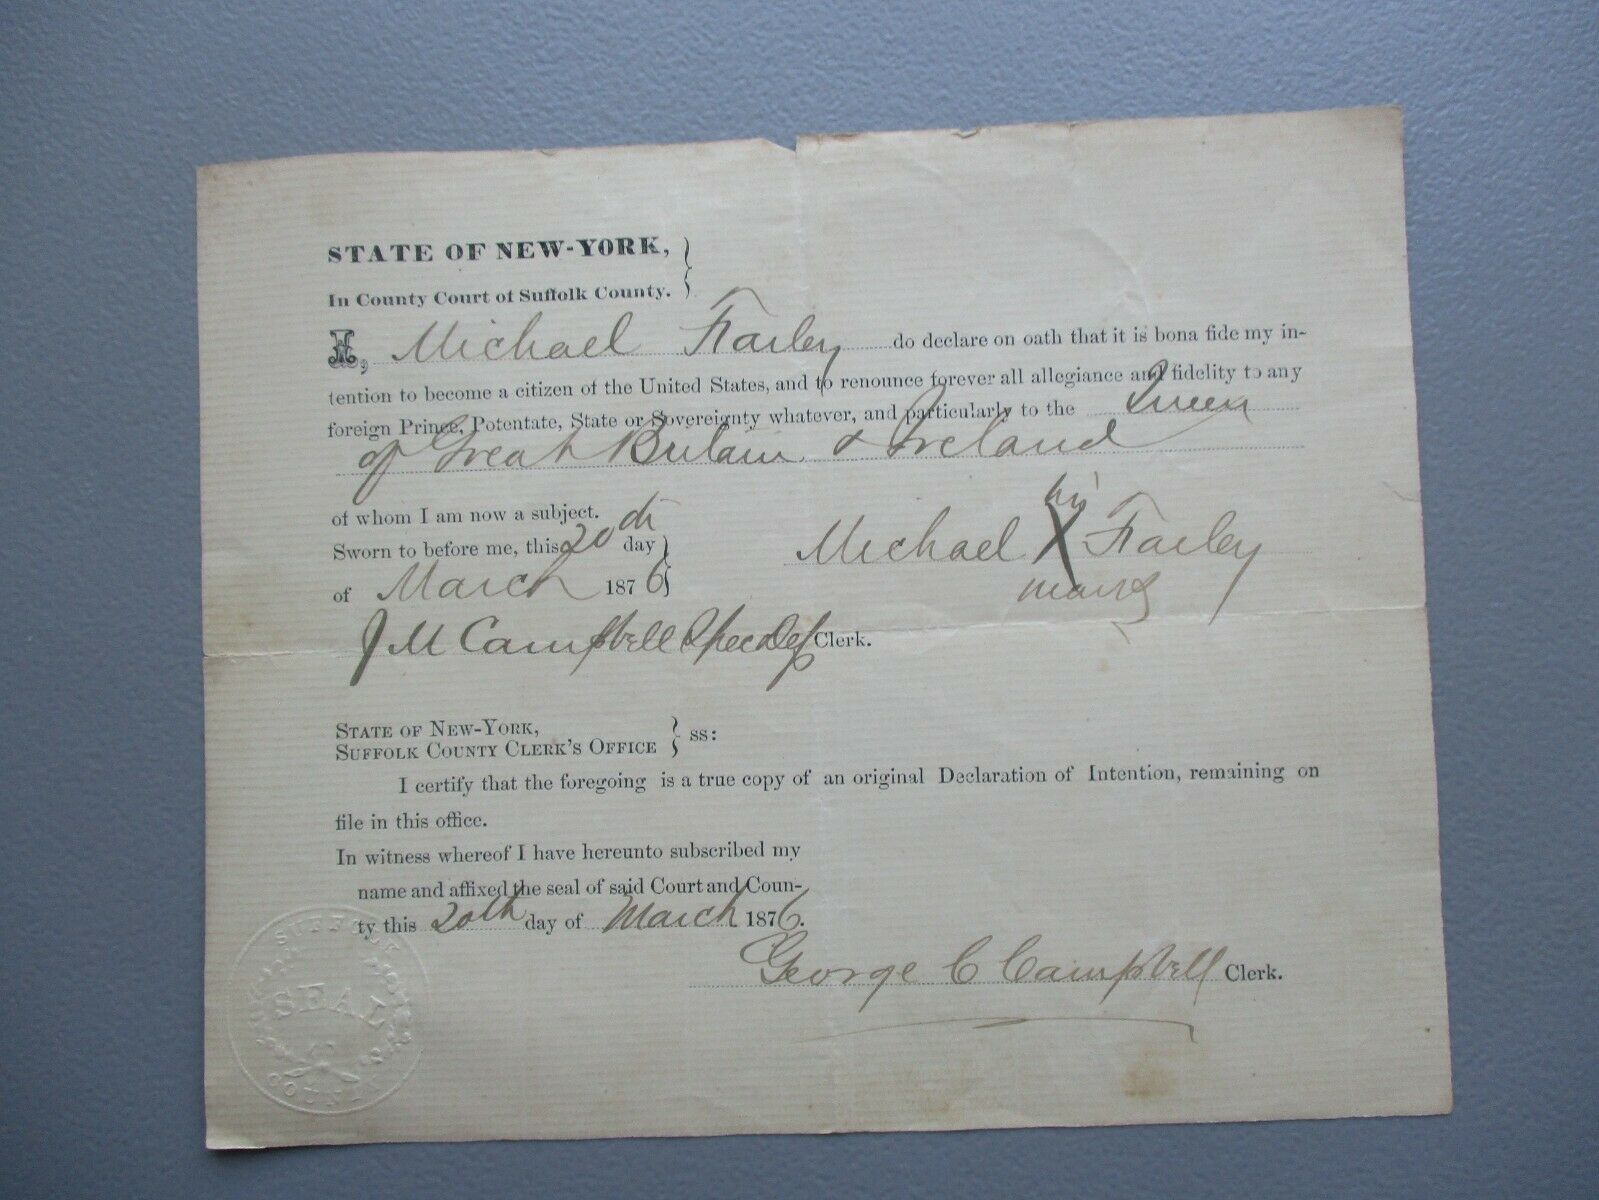 STATE OF NEW-YORK,
In County Court of Suffolk County.
I, Michael Farley do declare on oath that it is bona fide my in-
tention to become a citizen of the United States, and to renounce forever all allegiance and fidelity to any
foreign Prince, Potentate, State or Sovereignty whatever, and particularly to the Queen
of Great Britain & Ireland
of whom I am now a subject.
Sworn to before me, this 20th day
of March 1876
his
Michael X Farley
mark
J M Campbell Spec Dep Clerk.
STATE OF NEW-YORK,
SUFFOLK COUNTY CLERK'S OFFICE } ss:
I certify that the foregoing is a true copy of an original Declaration of Intention, remaining on
file in this office.
In witness whereof I have hereunto subscribed my
name and affixed the seal of said Court and Coun-
ty this 20th day of March 1876.
George C Campbell Clerk.
SUFFOLK
SEAL
COUNTY